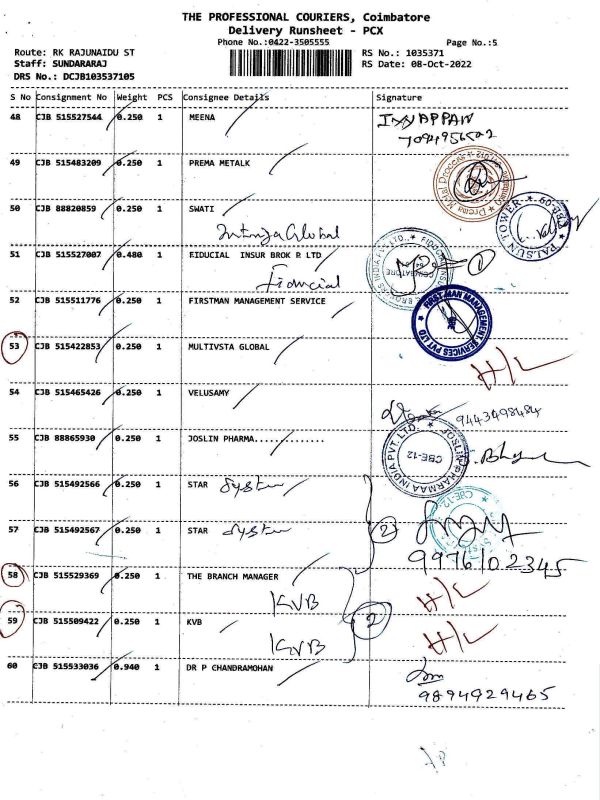 THE PROFESSIONAL COURIERS, Coimbatore
Delivery Runsheet - PCX
Phone No.:0422-3505555
Page No.:5
Route: RK RAJUNAIDU ST
RS No.: 1035371
Staff: SUNDARARAJ
RS Date: 08-Oct-2022
DRS No.: DCJB103537105
S No Consignment No Weight PCS Consignee Details Signature
48 CJB 515527544 0.250 1 MEENA
49 CJB 515483209 0.250 1 PREMA METALK
50 CJB 88820859 0.250 1 SWATI
Global
51 CJB 515527007 0.480 1 FIDUCIAL INSUR BROK P LTD
Fiducial
52 CJB 515511776 0.250 1 FIRSTMAN MANAGEMENT SERVICE
FIRST MAN MANAGEMENT SERVICES PVT LTD
53 CJB 515422853 0.250 1 MULTIVSTA GLOBAL
H/L
54 CJB 515465426 0.250 1 VELUSAMY
9443498484
55 CJB 88865930 0.250 1 JOSLIN PHARMA.............
CBE-12
56 CJB 515492566 0.250 1 STAR System
57 CJB 515492567 0.250 1 STAR System
2
9976102345
58 CJB 515529369 0.250 1 THE BRANCH MANAGER
KVB
H/L
59 CJB 515509422 0.250 1 KVB
2
KVB
H/L
60 CJB 515533036 0.940 1 DR P CHANDRAMOHAN
9894929465